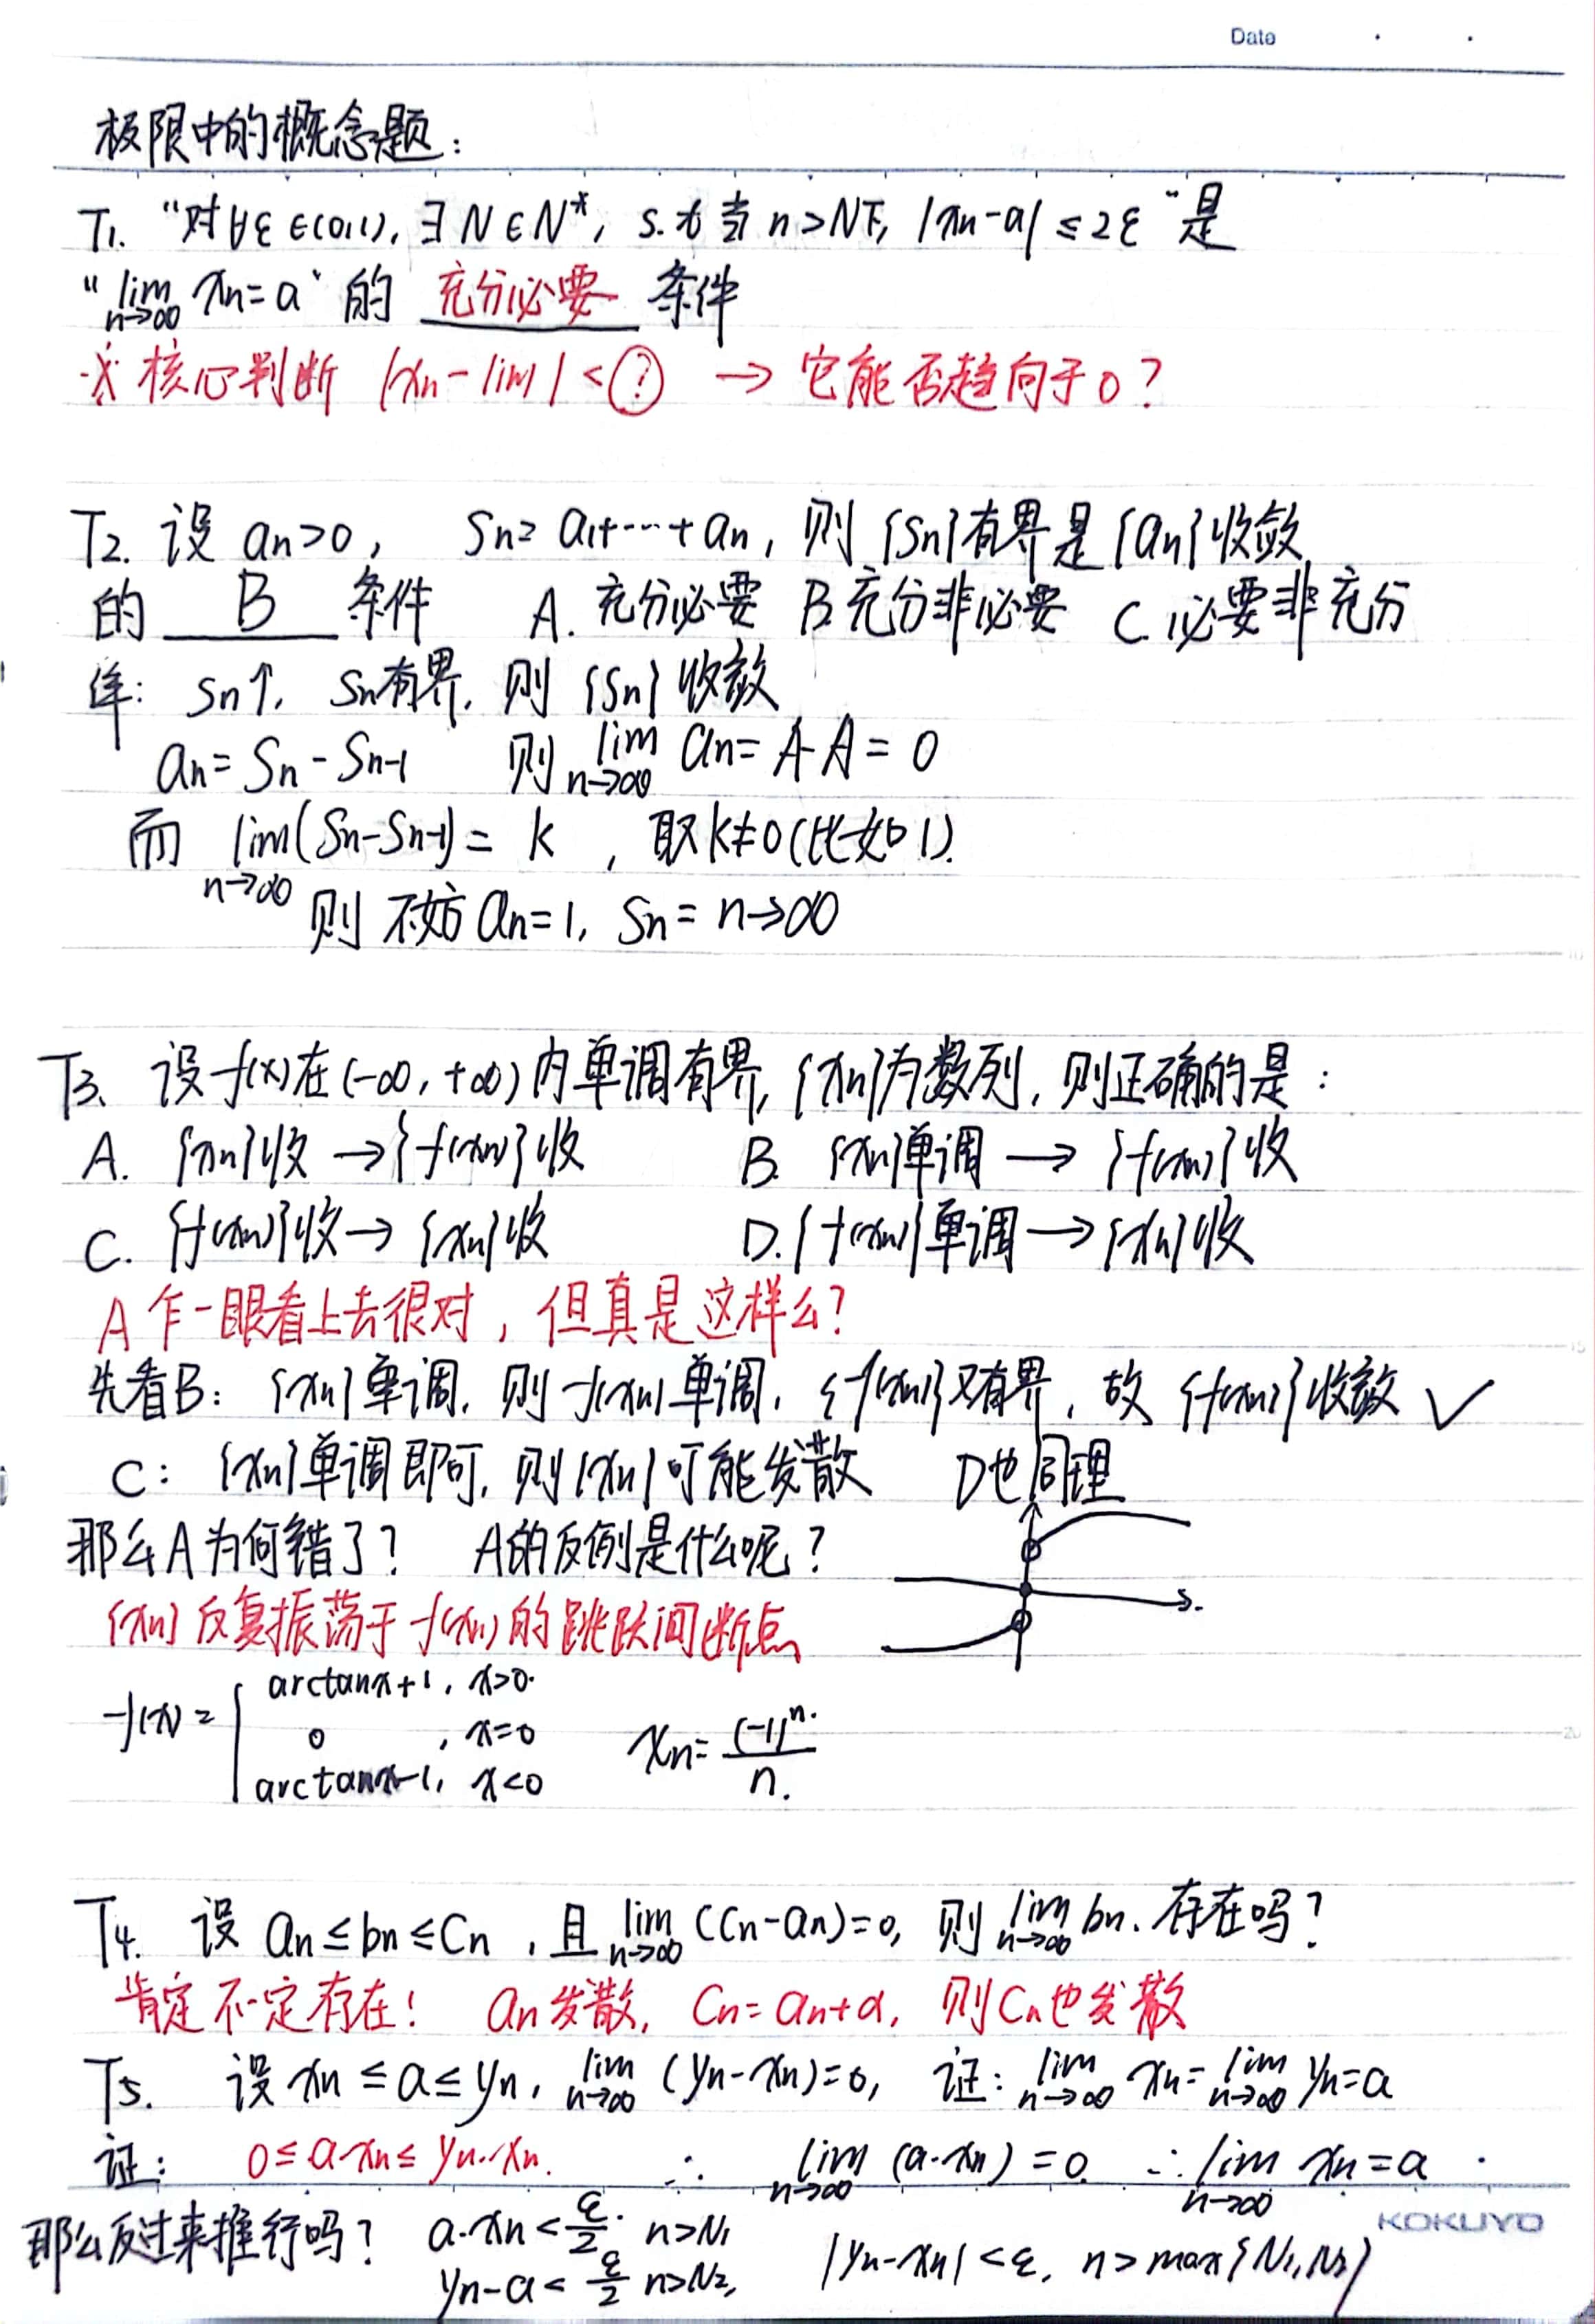 Date
极限中的概念题:
T1. "对∀ε∈(0,1), ∃N∈N*, s.t 当 n>N下, |xn-a|≤2ε"是
"lim n→∞ xn=a"的 充分必要 条件
※核心判断 |xn-lim|<? → 它能否趋向于0?
T2. 设 an>0, Sn=a1+…+an, 则{Sn}有界是{an}收敛
的 B 条件 A. 充分必要 B.充分非必要 C.必要非充分
Sn↑, Sn有界, 则{Sn}收敛
an=Sn-Sn-1 则 lim n→∞ an=A-A=0
而 lim n→∞ (Sn-Sn-1)=k, 取k≠0(比如1).
则不妨an=1, Sn=n→∞
T3. 设f(x)在(-∞,+∞)内单调有界, {xn}为数列, 则正确的是:
A. {xn}收→{f(xn)}收 B. {xn}单调→{f(xn)}收
C. {f(xn)}收→{xn}收 D.{f(xn)}单调→{xn}收
A乍一眼看上去很对, 但真是这样么?
先看B: {xn}单调, 则f(xn)单调, {f(xn)}又有界, 故{f(xn)}收敛 ✓
C: {xn}单调即可, 则{xn}可能发散 D也同理
那么A为何错了? A的反例是什么呢?
{xn}反复振荡于f(xn)的跳跃间断点
f(x)={ arctanx+1, x>0.
0, x=0 xn=(-1)^n/n.
arctanx-1, x<0
T4. 设an≤bn≤Cn, 且lim n→∞ (Cn-an)=0, 则lim n→∞ bn.存在吗?
肯定不一定存在! an发散, Cn=an+α, 则Cn也发散
T5. 设xn≤a≤yn, lim n→∞ (yn-xn)=0, 证: lim n→∞ xn=lim n→∞ yn=a
证: 0≤a-xn≤yn-xn. ∴ lim n→∞ (a-xn)=0 ∴lim n→∞ xn=a
那么反过来推行吗? a-xn<ε/2. n>N1
yn-a<ε/2 n>N2, |yn-xn|<ε, n>max{N1,N2}
KOKUYO